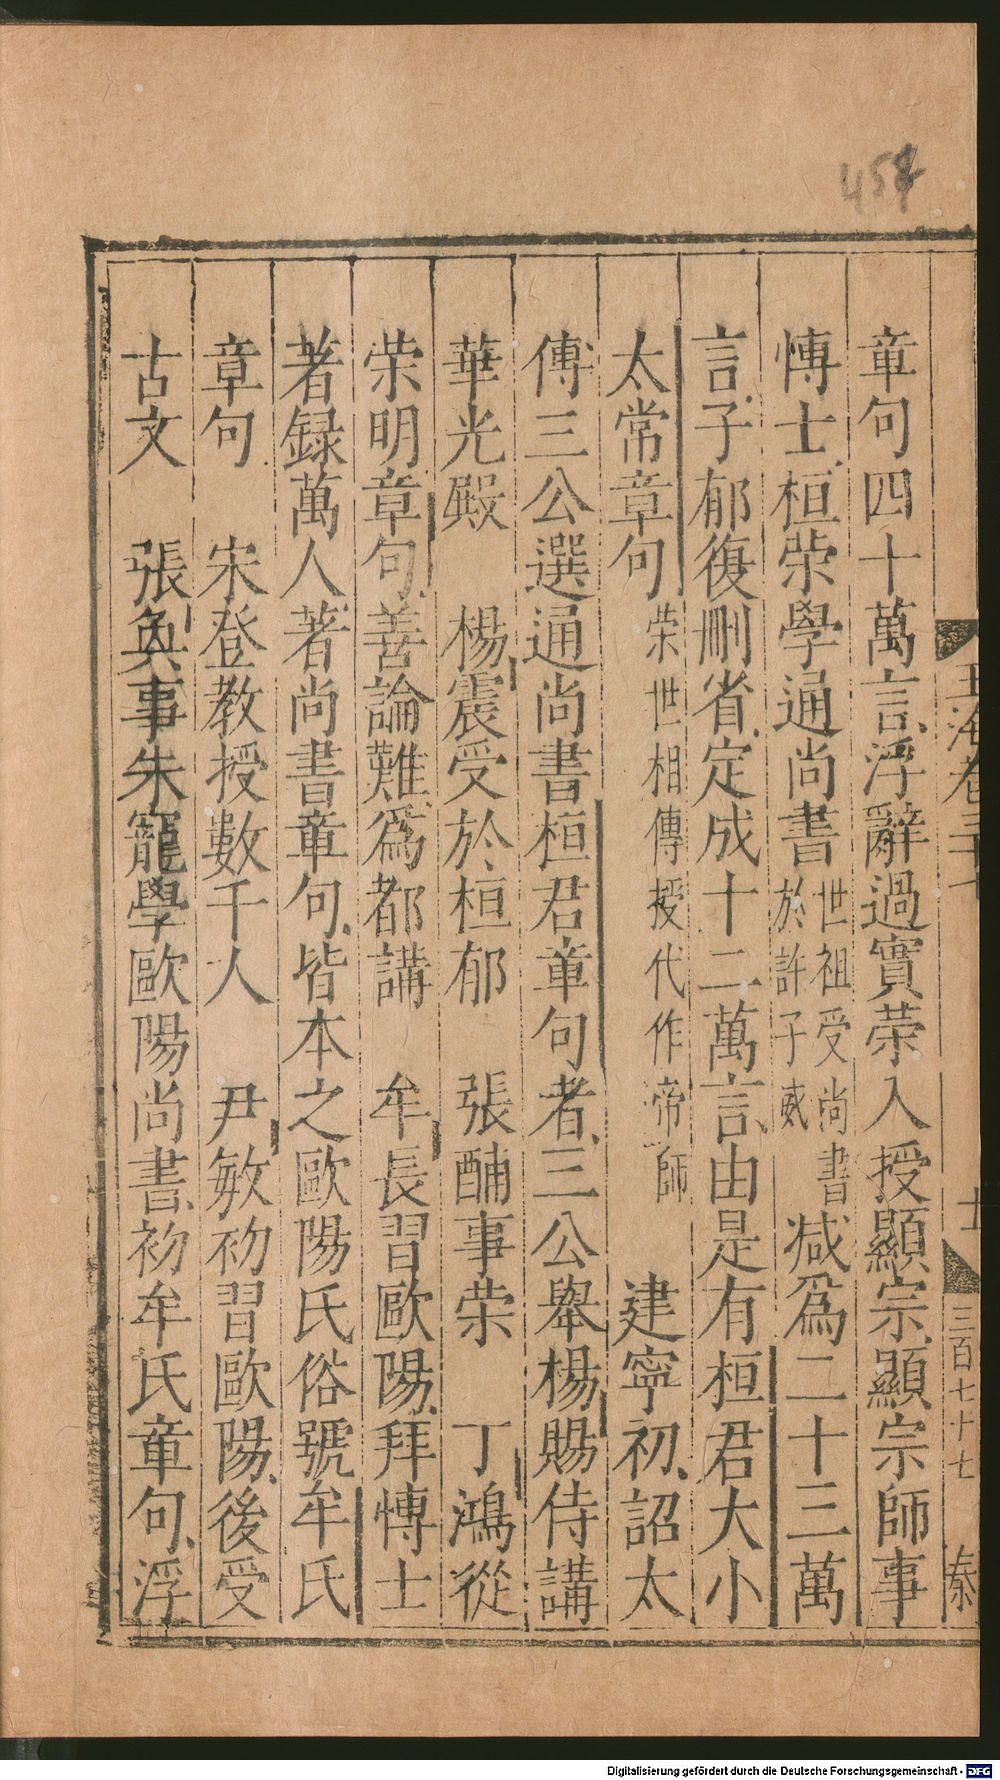 章句四十萬言浮辭過實荣入授顯宗顯宗師事
愽士桓荣學通尚書世祖受尚書於許子威減爲二十三萬
言子郁復刪省定成十二萬言由是有桓君大小
太常章句荣世相傳授代作帝師建寧初詔太
傅三公選通尚書桓君章句者三公舉楊賜侍講
華光殿 楊震受於桓郁 張酺事荣 丁鴻從
荣明章句善論難爲都講 牟長習歐陽拜愽士
著録萬人著尚書章句皆本之歐陽氏俗號牟氏
章句 宋登教授數千人 尹敏初習歐陽後受
古文 張奐事朱寵學歐陽尚書初牟氏章句浮
玉海卷三十七
十
三百七十七
秦
Digitalisierung gefördert durch die Deutsche Forschungsgemeinschaft - DFG